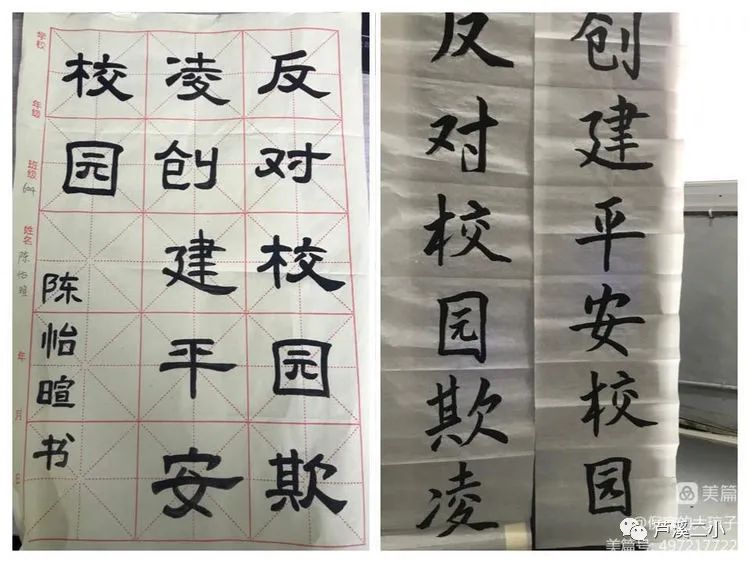 反对校园欺
凌创建平安
校园
陈怡暄书
学校
年级
班级 604
姓名 陈怡暄
年
月
日
创建平安校园
反对校园欺凌
美篇
芦溪二小
美篇号:497217722